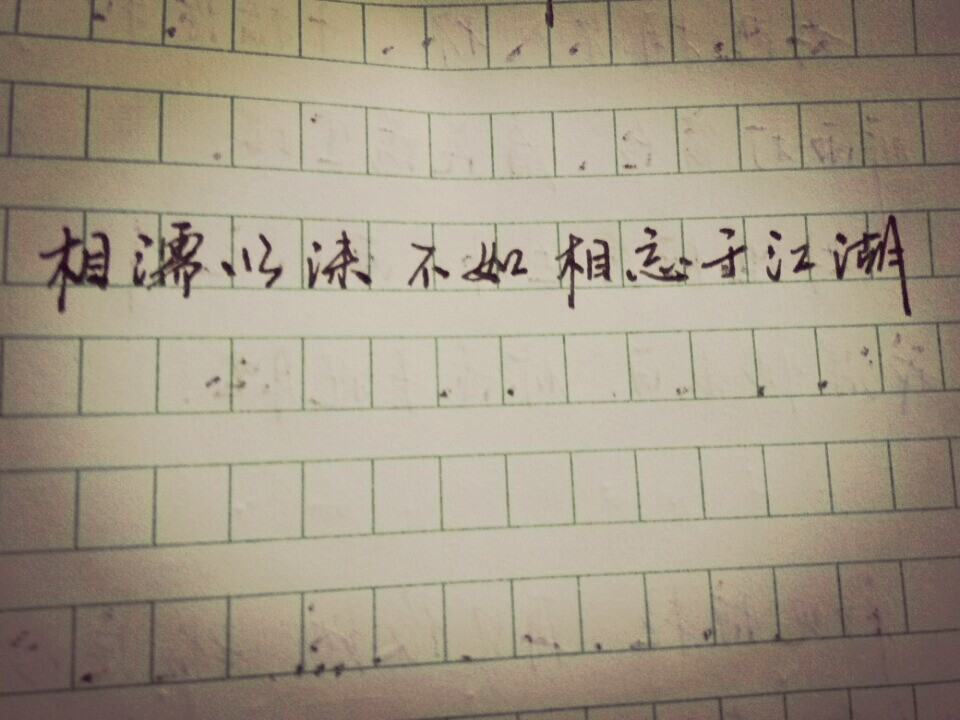 相濡以沫 不如相忘于江湖